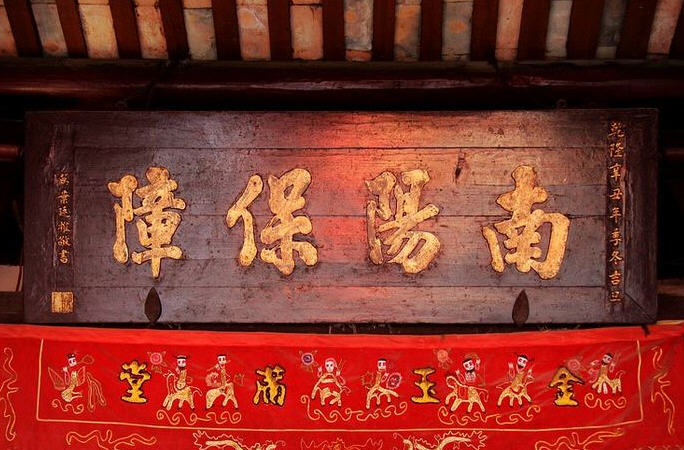 乾隆辛丑年季冬吉旦
南陽保障
葉廷推敬書
金玉滿堂